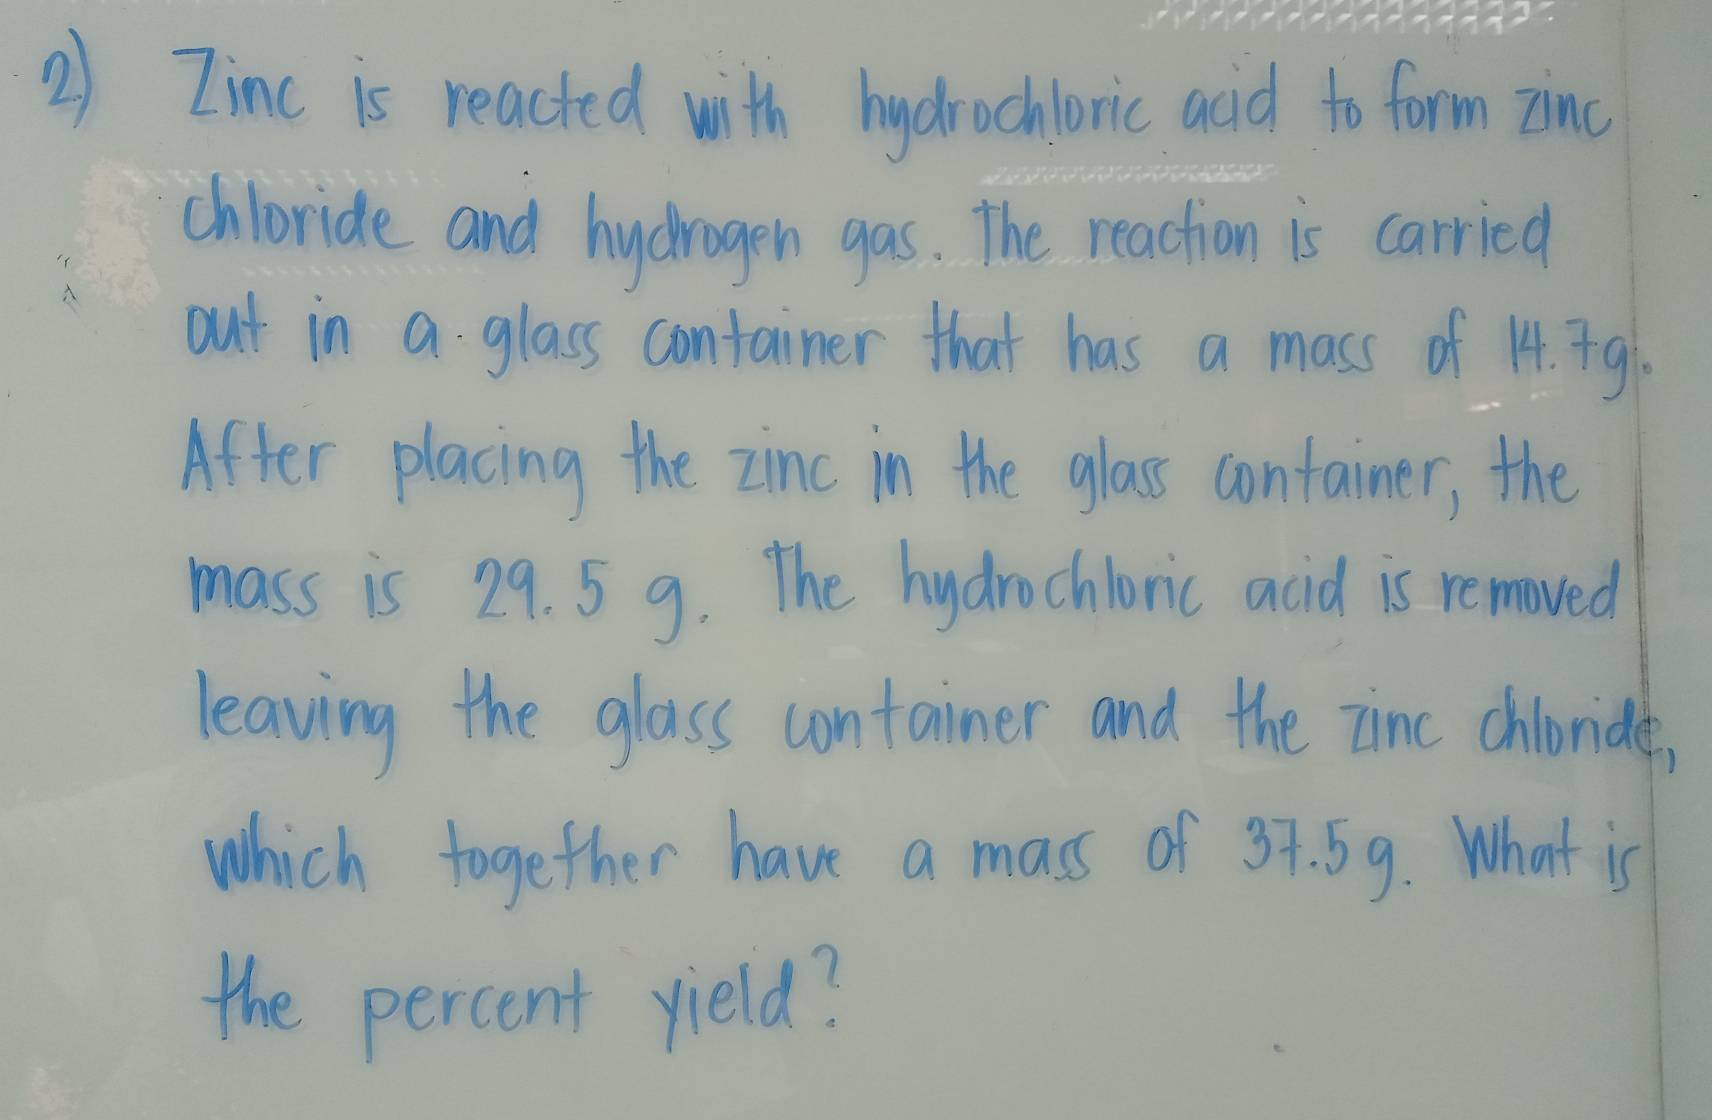 2) Zinc is reacted with hydrochloric acid to form zinc
chloride and hydrogen gas. The reaction is carried
out in a glass container that has a mass of 14.7g.
After placing the zinc in the glass container, the
mass is 29.5 g. The hydrochloric acid is removed
leaving the glass container and the zinc chloride,
which together have a mass of 37.5g. What is
the percent yield?